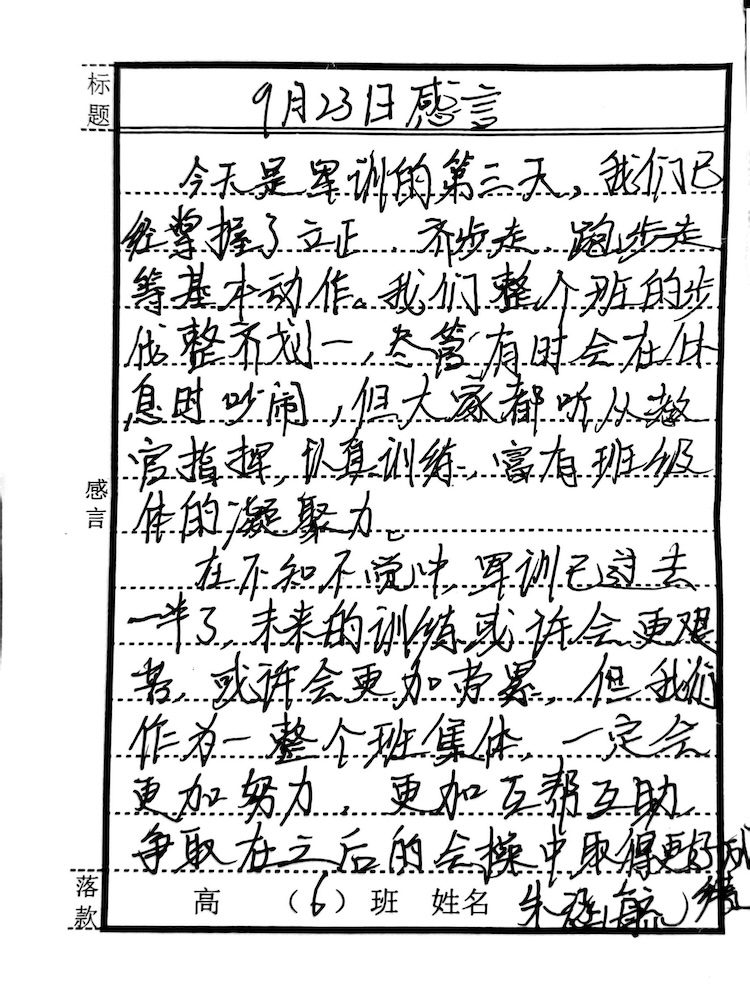 标题
9月23日感言
今天是军训的第三天，我们已
经掌握了立正、齐步走、跑步走
等基本动作。我们整个班的步
伐整齐划一，尽管有时会在休
息时吵闹，但大家都听从教
官指挥，认真训练，富有班级
体的凝聚力。
感言
在不知不觉中，军训已过去
一半了，未来的训练或许会更艰
苦，或许会更加劳累，但我们
作为一整个班集体，一定会
更加努力，更加互帮互助，
争取在之后的会操中取得更好成
绩
落款
高 （6）班 姓名 朱